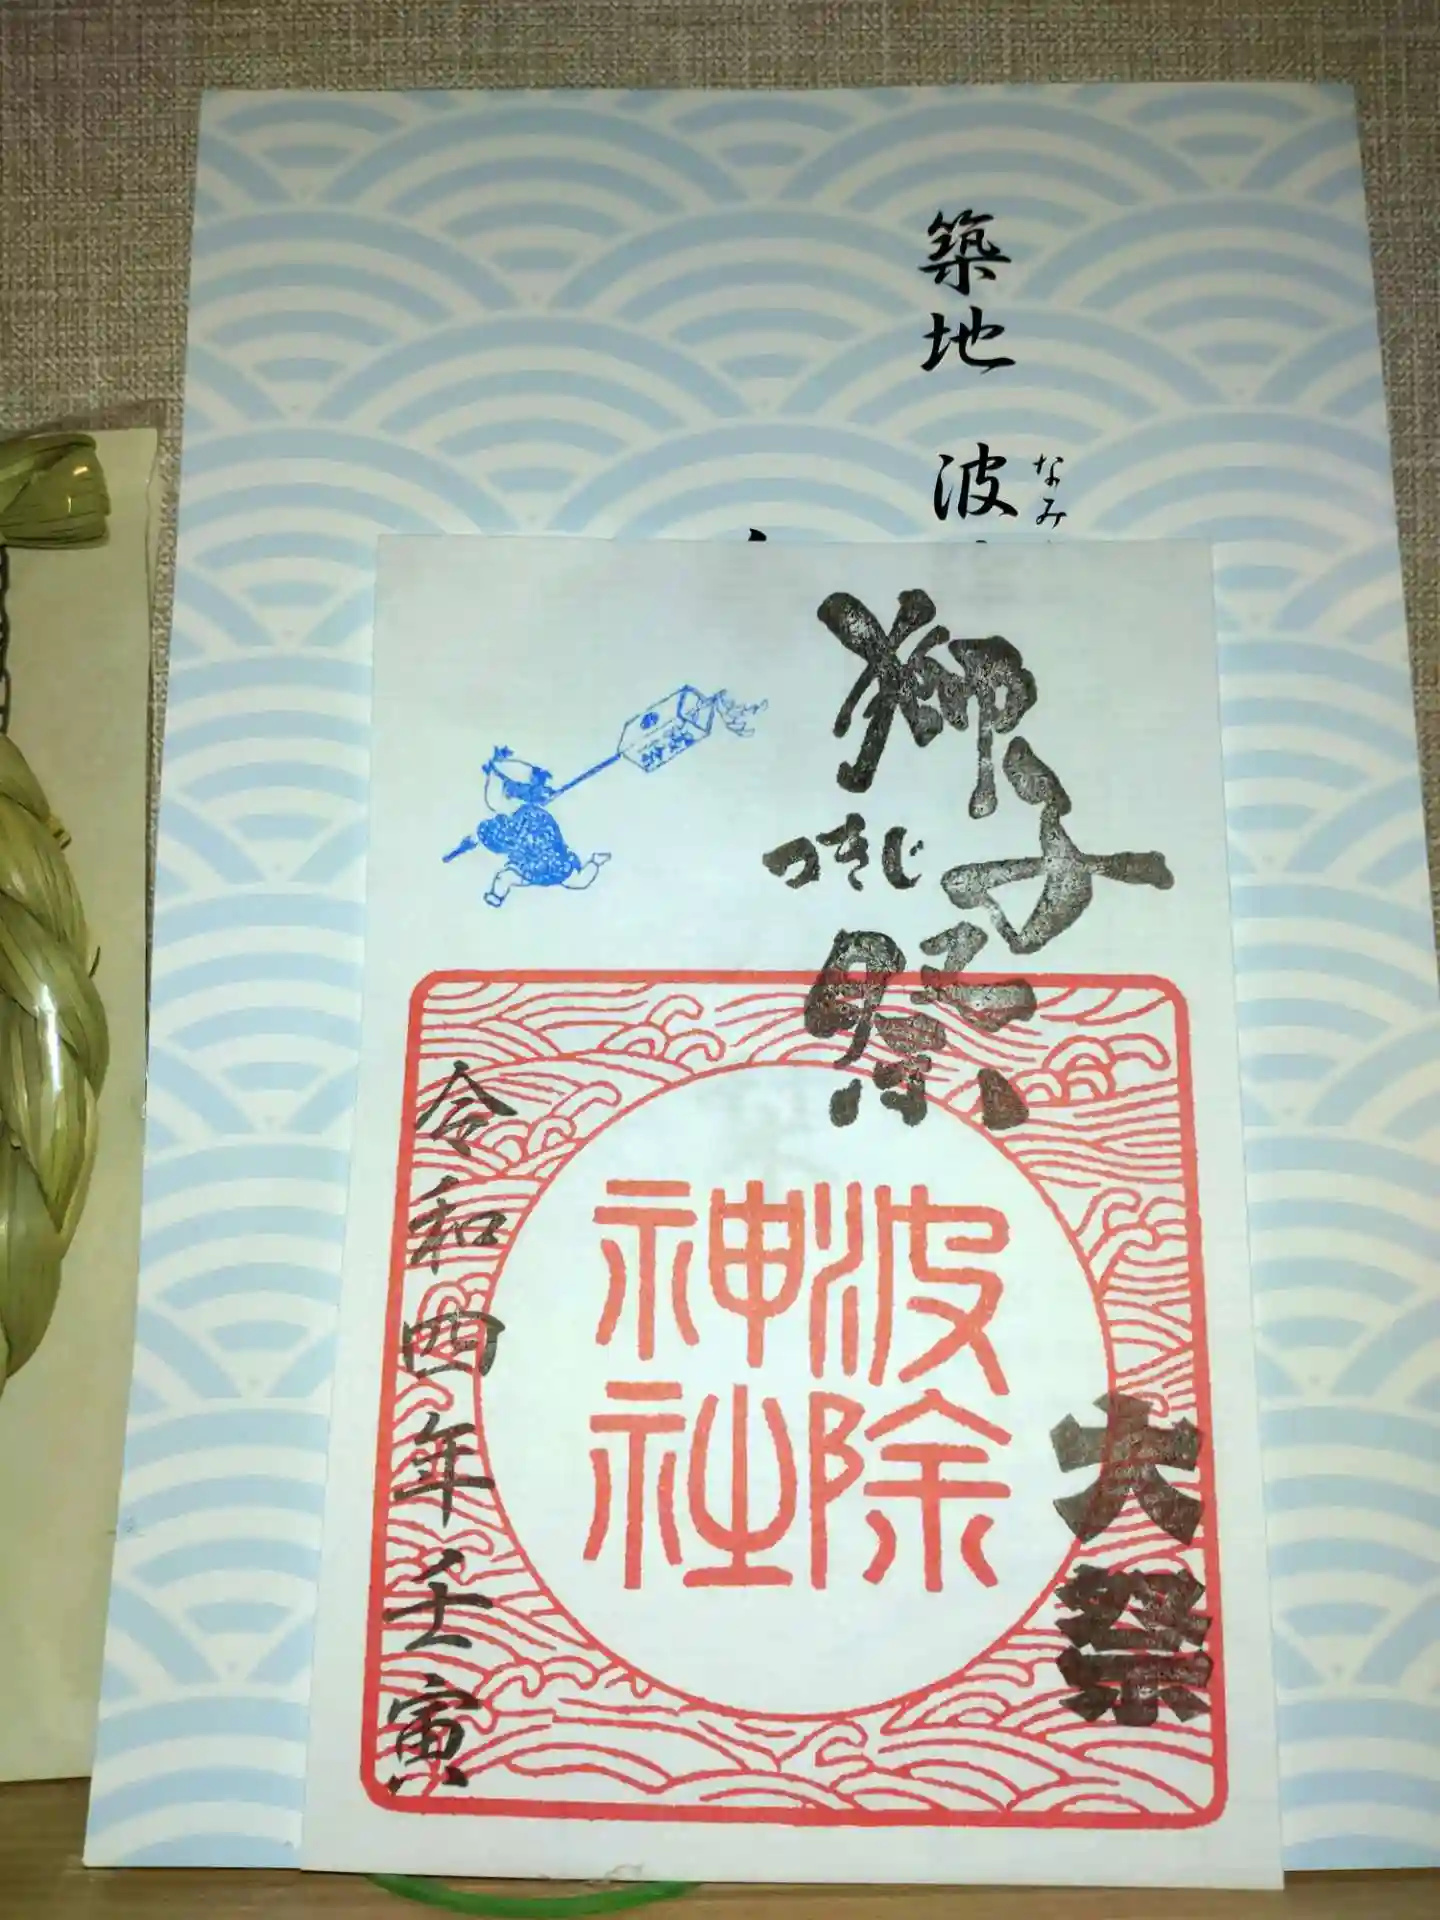 築地 波
なみ
獅子祭
つきじ
大祭
波除
神社
令和四年壬寅